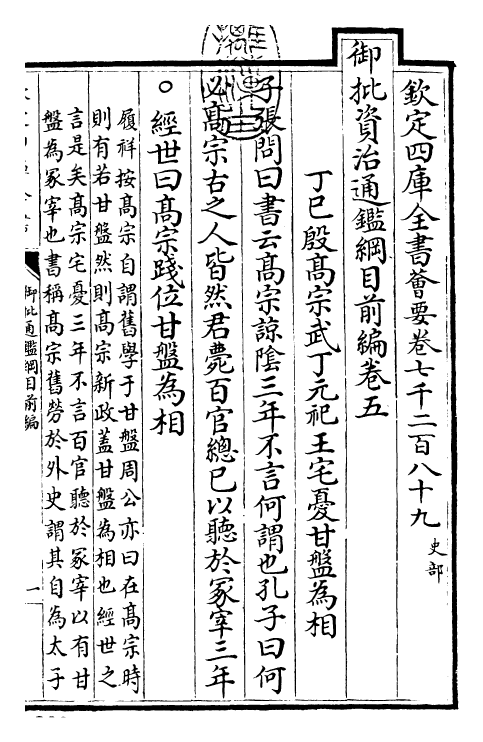 欽定四庫全書薈要卷七千二百八十九 史部
御批資治通鑑綱目前編卷五
丁巳殷髙宗武丁元祀王宅憂甘盤為相
子張問曰書云髙宗諒陰三年不言何謂也孔子曰何
必髙宗古之人皆然君薨百官總已以聽於冢宰三年
○經世曰髙宗踐位甘盤為相
履祥按髙宗自謂舊學于甘盤周公亦曰在髙宗時
則有若甘盤然則髙宗新政蓋甘盤為相也經世之
言是矣髙宗宅憂三年不言百官聽於冢宰以有甘
盤為冢宰也書稱髙宗舊勞於外史謂其自為太子
御批通鑑綱目前編
一